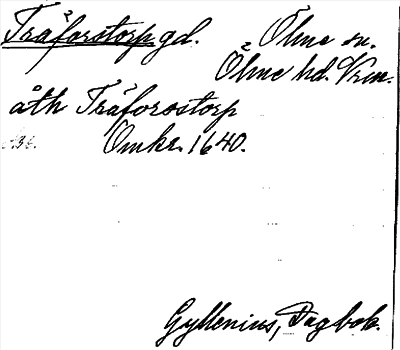 Tråforstorp gd. Ölme sn.
Ölme hd. Vrm.
åth Tråforostorp
Omkr. 1640.
Gyllenius, Dagbok.